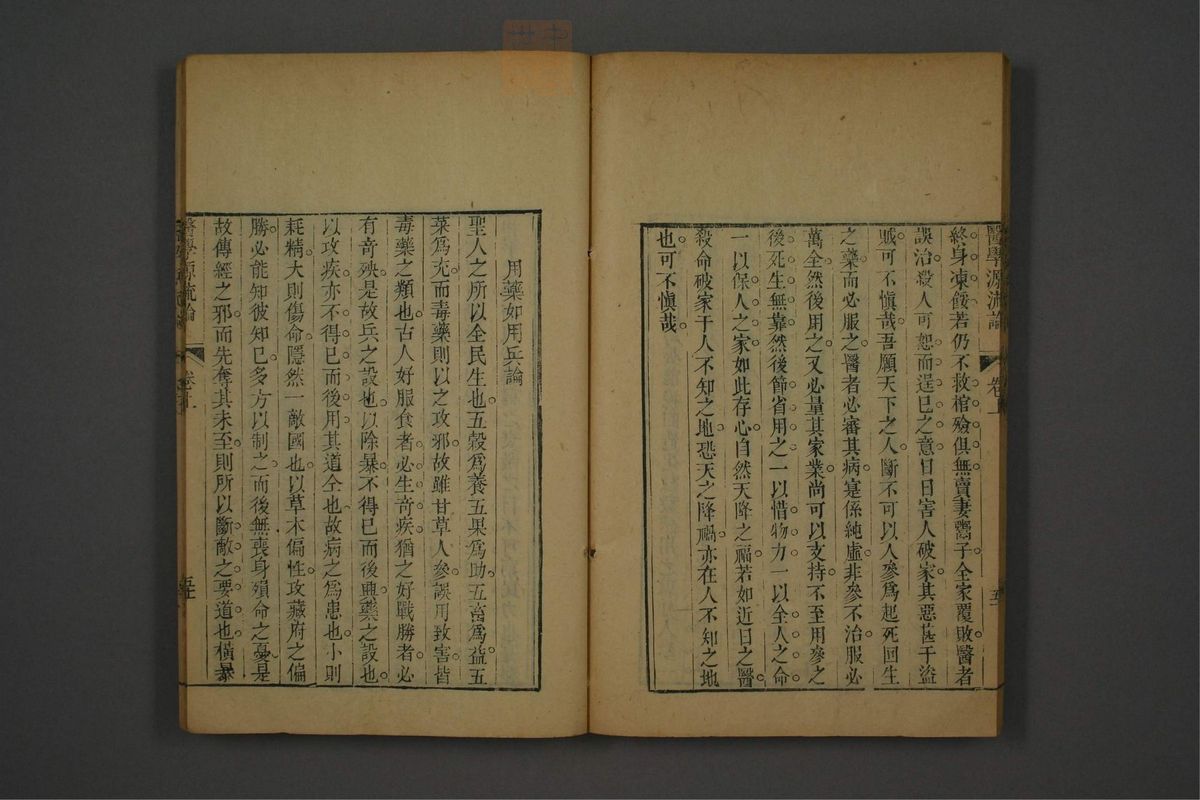 醫學源流論 卷上 五十
終身凍餒若仍不救棺殮俱無賣妻鬻子全家覆敗醫者
誤治殺人可恕而逞已之意日日害人破家其惡甚于盜
賊可不慎哉吾願天下之人斷不可以人參爲起死回生
之藥而必服之醫者必審其病寔係純虛非參不治服必
萬全然後用之又必量其家業尚可以支持不至用參之
後死生無靠然後節省用之一以惜物力一以全人之命
一以保人之家如此存心自然天降之福若如近日之醫
殺命破家于人不知之地恐天之降禍亦在人不知之地
也可不愼哉
用藥如用兵論
聖人之所以全民生也五穀爲養五果爲助五畜爲益五
菜爲充而毒藥則以之攻邪故雖甘草人參誤用致害皆
毒藥之類也古人好服食者必生奇疾猶之好戰勝者必
有奇殃是故兵之設也以除暴不得已而後興藥之設也
以攻疾亦不得已而後用其道仝也故病之爲患也小則
耗精大則傷命隱然一敵國也以草木偏性攻藏府之偏
勝必能知彼知已多方以制之而後無喪身殞命之憂是
故傳經之邪而先奪其未至則所以斷敵之要道也橫暴
醫學源流論 卷上